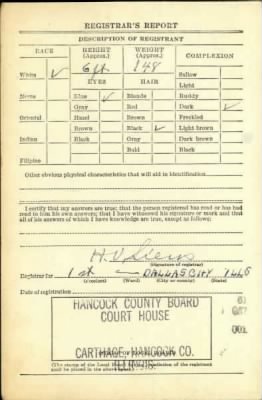 REGISTRAR'S REPORT
DESCRIPTION OF REGISTRANT
RACE HEIGHT (Approx.) WEIGHT (Approx.) COMPLEXION
White ✓ 6 ft 148 Sallow
EYES HAIR Light
Negro Blue ✓ Blonde Ruddy
Gray Red Dark ✓
Oriental Hazel Brown Freckled
Brown Black ✓ Light brown
Indian Black Gray Dark brown
Bald Black
Filipino
Other obvious physical characteristics that will aid in identification
I certify that my answers are true; that the person registered has read or has had
read to him his own answers; that I have witnessed his signature or mark and that
all of his answers of which I have knowledge are true, except as follows:
(Signature of registrar)
Registrar for 1st DALLAS CITY
(Precinct) (Ward) (City or county) (State)
Date of registration
HANCOCK COUNTY BOARD
COURT HOUSE
CARTHAGE, HANCOCK CO.
ILLINOIS
(The stamp of the Local Board of the registrant
shall be placed in the above